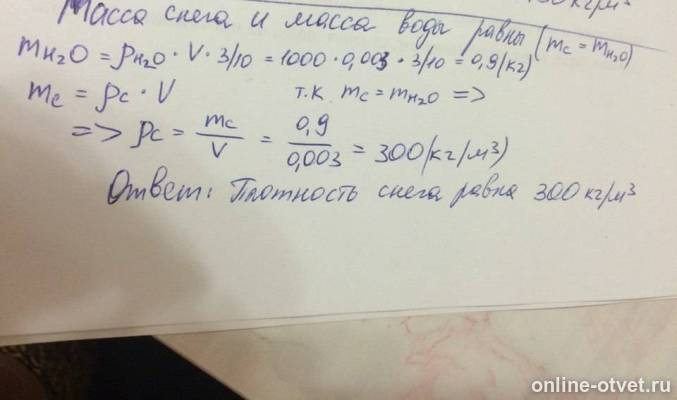 30 кг/м³
Масса снега и масса воды равны (mс = mH₂O)
mH₂O = ρH₂O · V · 3/10 = 1000 · 0,003 · 3/10 = 0,9 (кг)
mс = ρс · V т.к. mс = mH₂O =>
=> ρс = mс/V = 0,9/0,003 = 300 (кг/м³)
Ответ: Плотность снега равна 300 кг/м³
online-otvet.ru